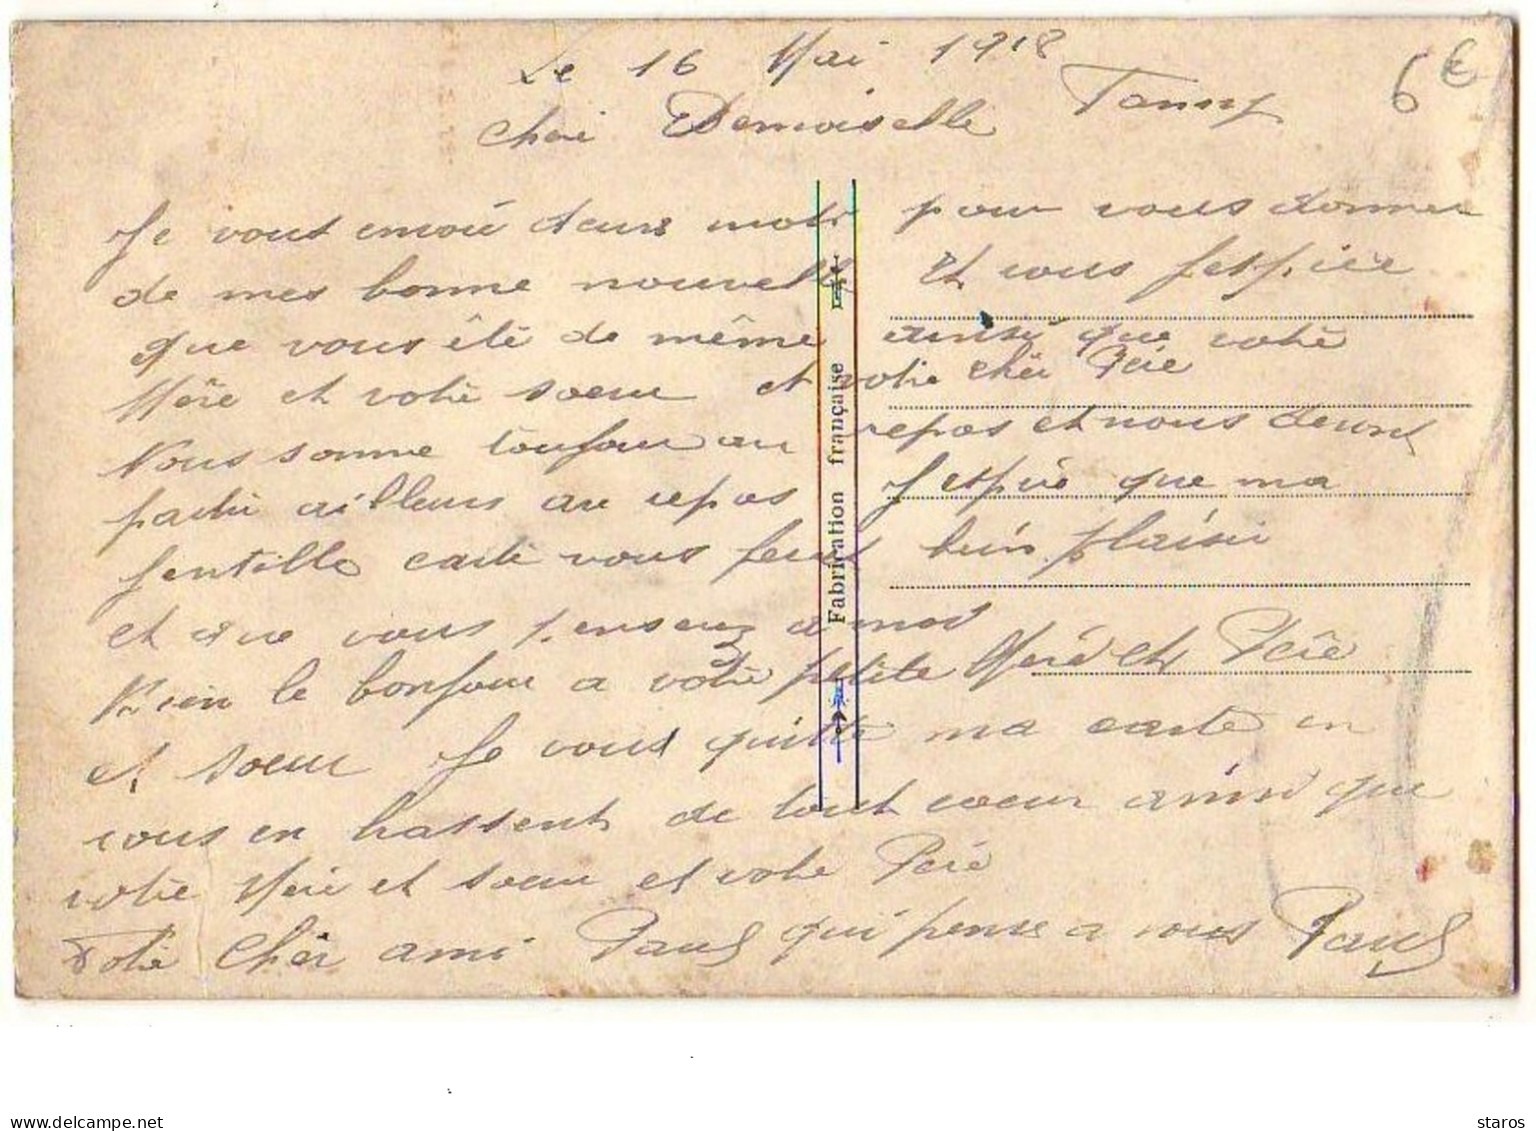 Le 16 Mai 1918
6 €
Cher Demoiselle Fanny
Je vous envoié deux mots pour vous donner
de mes bonne nouvelle Et vous Jespére
que vous été de même ainsi que votre
Mére et votre soeur et votre chér Pére
Nous somme toujour au repos et nous deux
partir ailleurs au repos Jespére que ma
Jentille carte vous feras bien plaisir
et que vous penserez a moi
Rien le bonjour a votre petite Méré et Pére
et soeur Je vous quitte ma carte en
vous en brassent de tout coeur ainsi que
votre Mére et soeur et votre Pére
Votre Chér ami Paul qui pense a vous Paul
Fabrication française
delcampe.net
staros